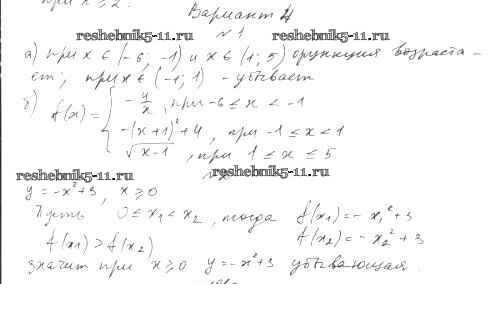 при x ≥ 2.
Вариант 4
reshebnik5-11.ru №1 reshebnik5-11.ru
а) при x ∈ (-6; -1) и x ∈ (1; 5) функция возраста-
ет; при x ∈ (-1; 1) - убывает
f(x) = { -4/x, при -6 ≤ x < -1
-(x+1)²+4, при -1 ≤ x < 1
√(x-1), при 1 ≤ x ≤ 5
reshebnik5-11.ru reshebnik5-11.ru
y = -x²+3, x ≥ 0
Пусть 0 ≤ x₁ < x₂, тогда f(x₁) = -x₁²+3
f(x₁) > f(x₂) f(x₂) = -x₂²+3
значит при x ≥ 0 y = -x²+3 убывающая.